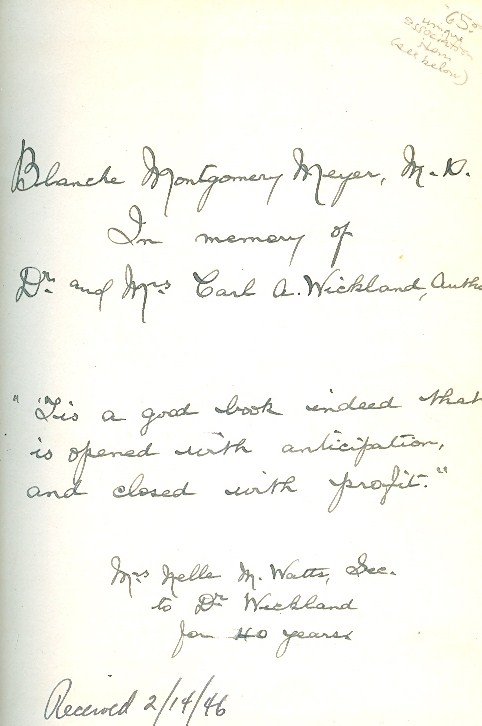 65.00
unique
association
item
(see below)
Blanche Montgomery Meyer, M.D.
In memory of
Dr and Mrs Carl A. Wickland, Autho
" 'Tis a good book indeed that
is opened with anticipation,
and closed with profit."
Mrs Nelle M. Watts, Sec.
to Dr Wickland
for 40 years
Received 2/14/46